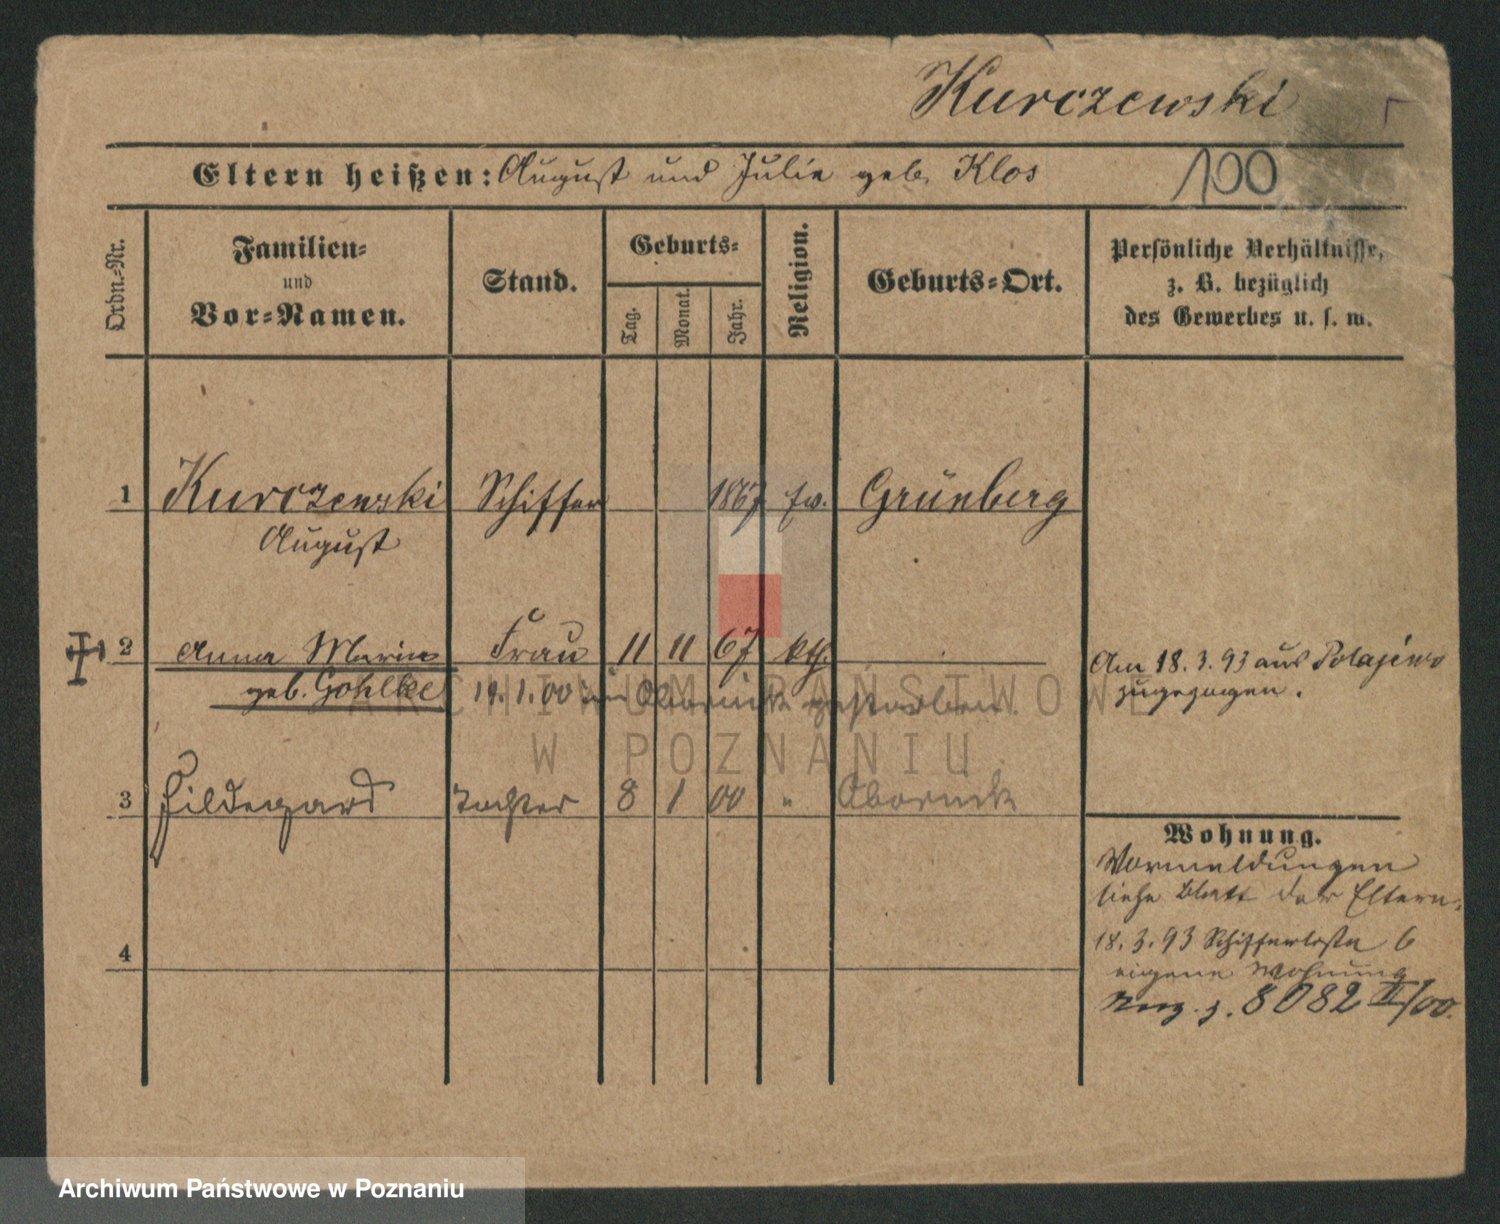 Kurczewski
Eltern heißen: August und Julie geb. Klos
100
Ordn.-Nr.
Familien-
und
Vor-Namen.
Stand.
Geburts-
Tag.
Monat.
Jahr.
Religion.
Geburts-Ort.
Persönliche Verhältnisse,
z. B. bezüglich
des Gewerbes u. s. w.
1 Kurczewski Schiffer 1867 ev. Grünberg
August
2 Anna Maria Frau 11 11 67 kth.
geb. Gohlke 19.1.00 in Obornik gestorben.
Am 18.3.93 aus Polajewo
zugezogen.
3 Hildegard Tochter 8 1 00 " Obornik
4
Wohnung.
Vormeldungen
siehe Blatt der Eltern.
18.3.93 6
eigene Wohnung
8082 II/00.
ARCHIWUM PAŃSTWOWE
W POZNANIU
Archiwum Państwowe w Poznaniu